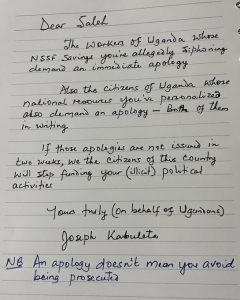 Dear Saleh
The workers of Uganda whose
NSSF Savings you're allegedly siphoning
demand an immediate apology
Also the citizens of Uganda whose
national resources you've personalized
also demand an apology - Both of them
in writing
If those apologies are not issued in
two weeks, we the citizens of this country
will stop funding your (illicit) political
activities
Yours truly (on behalf of Ugandans)
Joseph Kabuleta
NB An apology doesn't mean you avoid
being prosecuted